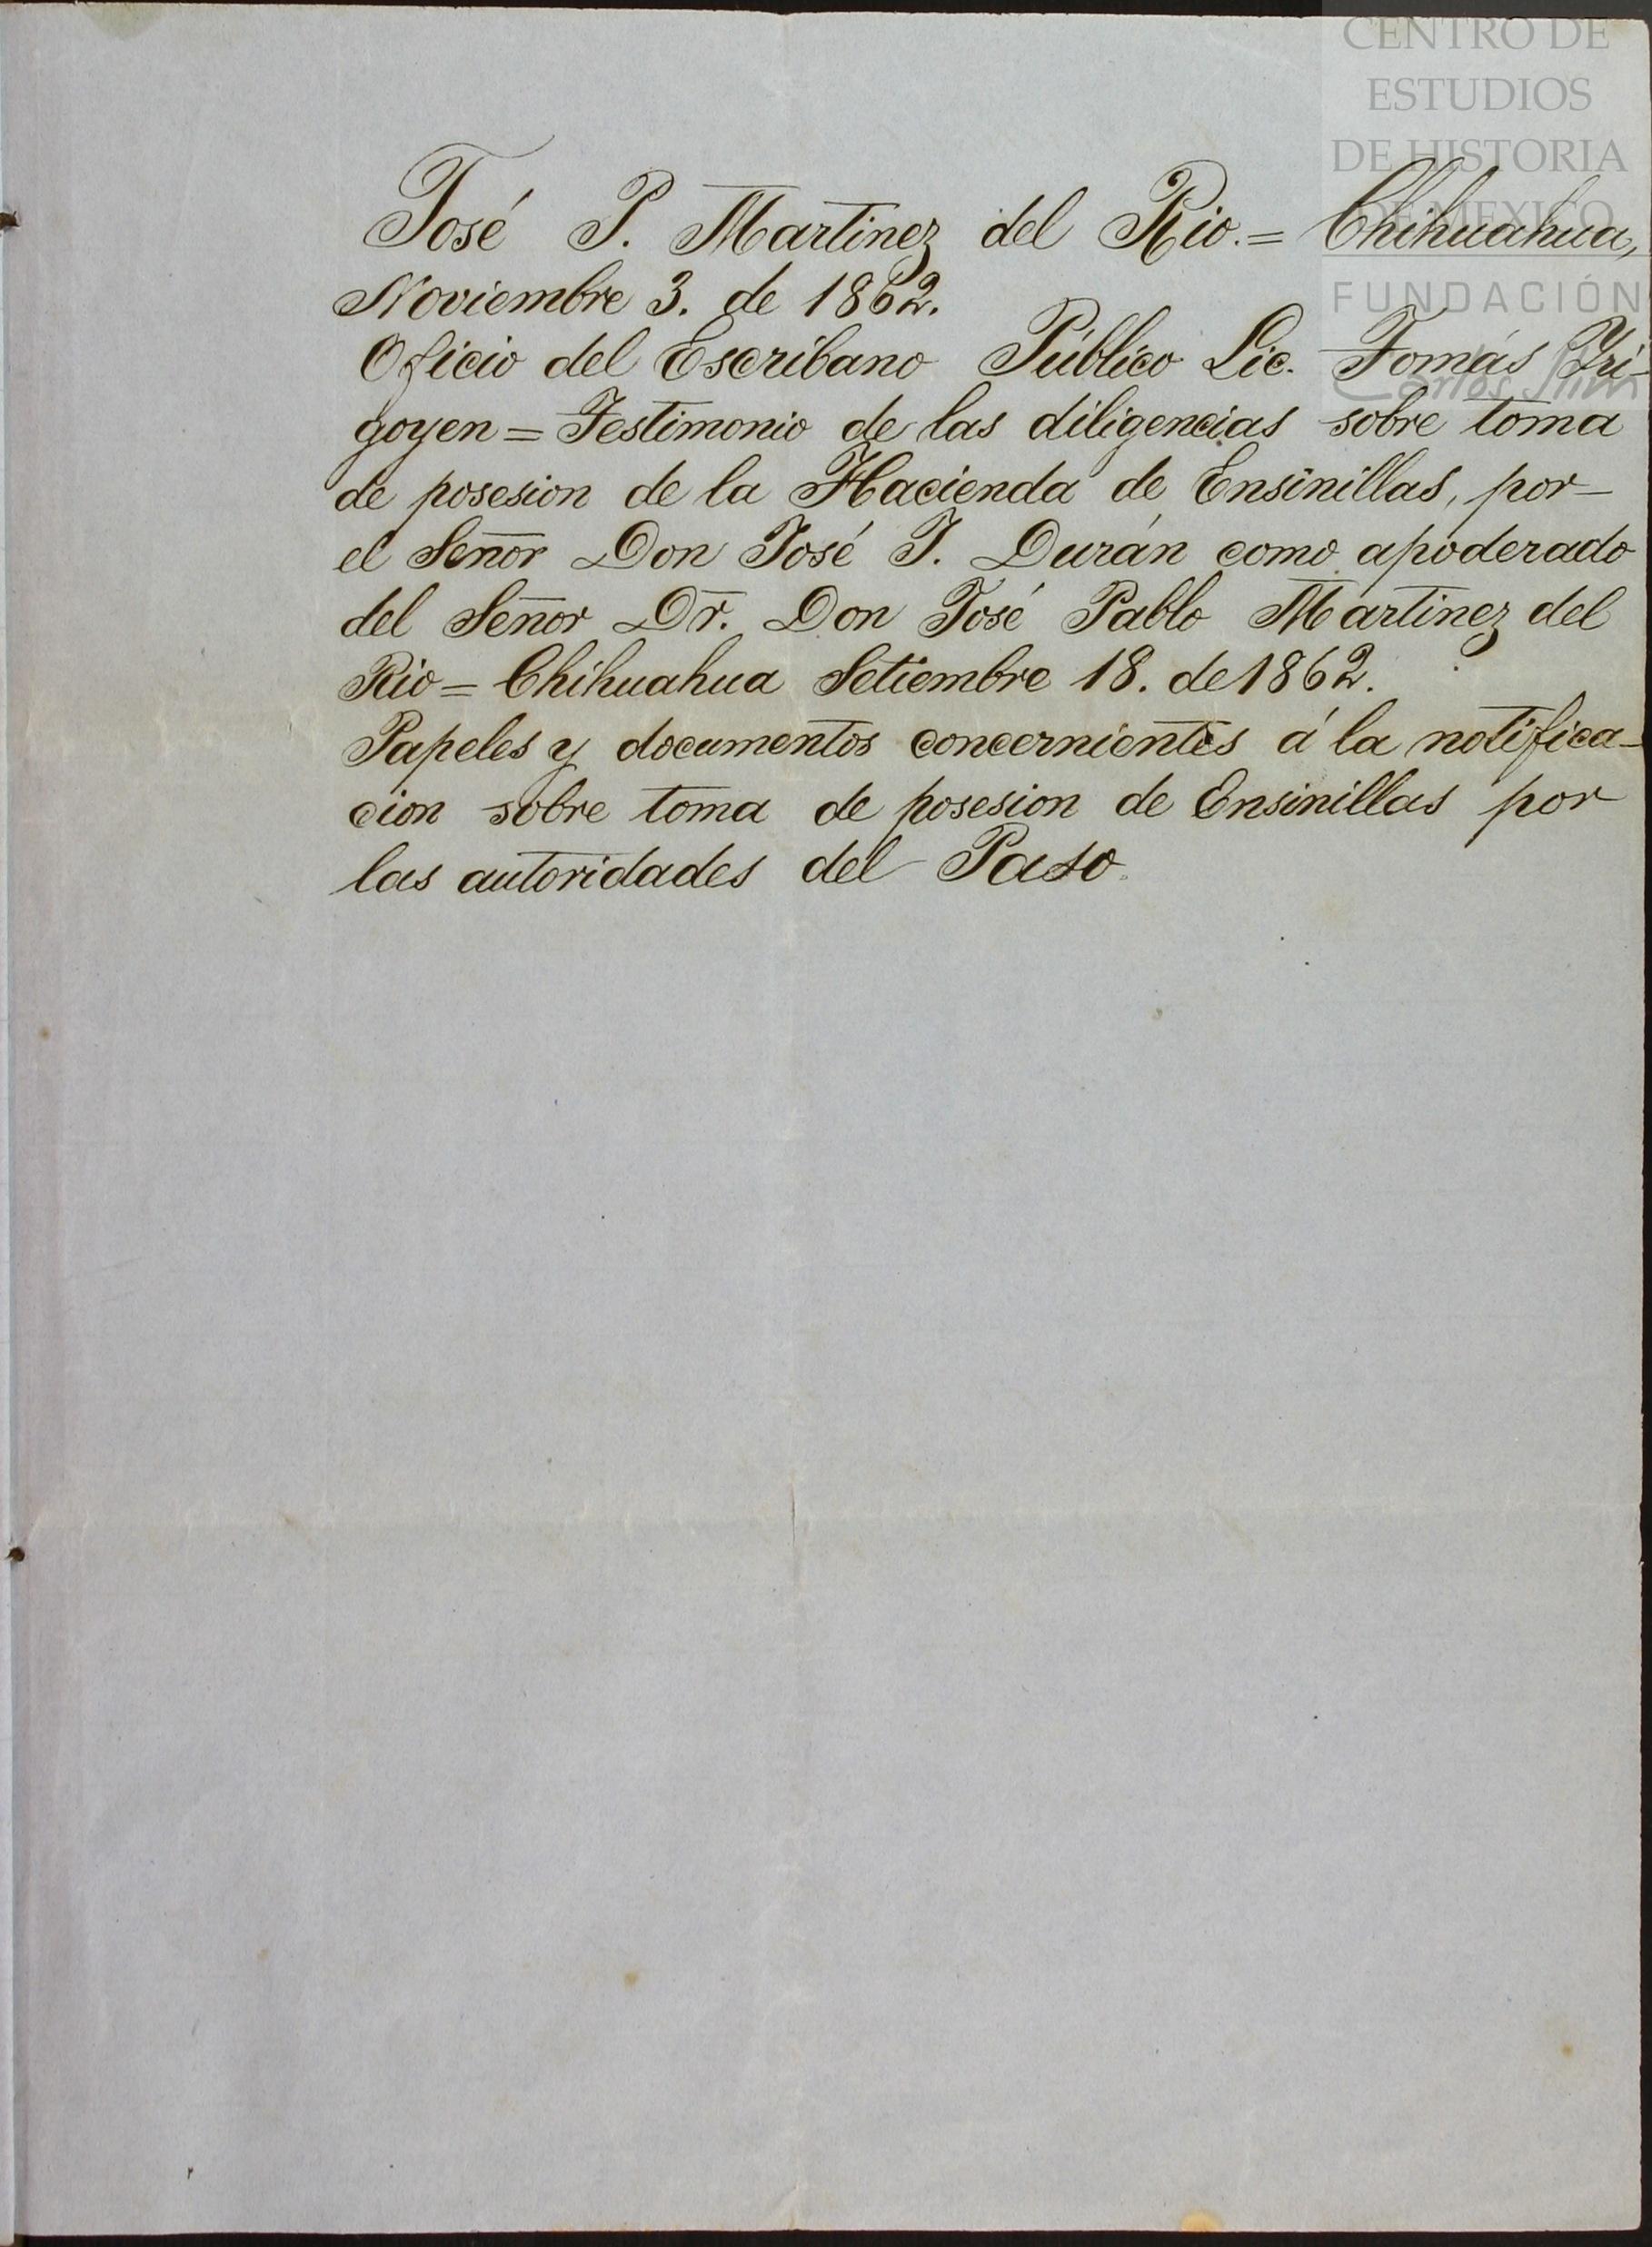 CENTRO DE
ESTUDIOS
DE HISTORIA
DE MEXICO
FUNDACIÓN
Carlos Slim
José P. Martinez del Rio.= Chihuahua,
Noviembre 3. de 1862.
Oficio del Escribano Público Lic. Tomás Yri-
goyen = Testimonio de las diligencias sobre toma
de posesion de la Hacienda de Ensinillas, por-
el Señor Don José J. Durán como apoderado
del Señor Dr. Don José Pablo Martinez del
Rio = Chihuahua Setiembre 18. de 1862.
Papeles y documentos concernientes á la notifica-
cion sobre toma de posesion de Ensinillas por
las autoridades del Paso.